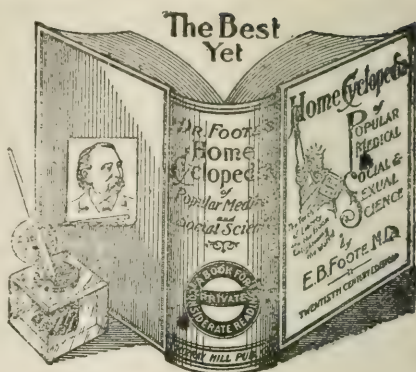 The Best
Yet
DR. FOOTE'S
Home
Cyclopedia
of
Popular Medical
and
Social Science
A BOOK FOR
PRIVATE
CONSIDERATE
HILL PUB.
Home Cyclopedia
of
POPULAR
MEDICAL
SOCIAL &
SEXUAL
SCIENCE
by
E.B. FOOTE M.D.
TWENTIETH CENTURY EDITION